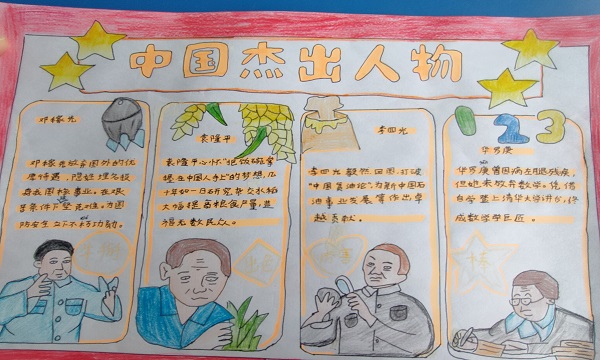 中国杰出人物
邓稼先
邓稼先放弃国外的优
厚待遇，隐姓埋名投
身我国核事业。在艰
苦条件下坚克难，为国
防安全立下不朽功勋。
袁隆平
袁隆平心怀"把饭碗牢
端在中国人手"的梦想，几
十年如一日研究杂交水稻
大幅提高粮食产量，造
福无数民众。
李四光
李四光毅然回国，打破
"中国贫油论"，为新中国石
油事业发展等作出卓
越贡献。
1 2 3
华罗庚
华罗庚曾因病左腿残疾，
但他未放弃数学。凭借
自学登上清华大学讲台，终
成数学学巨匠。